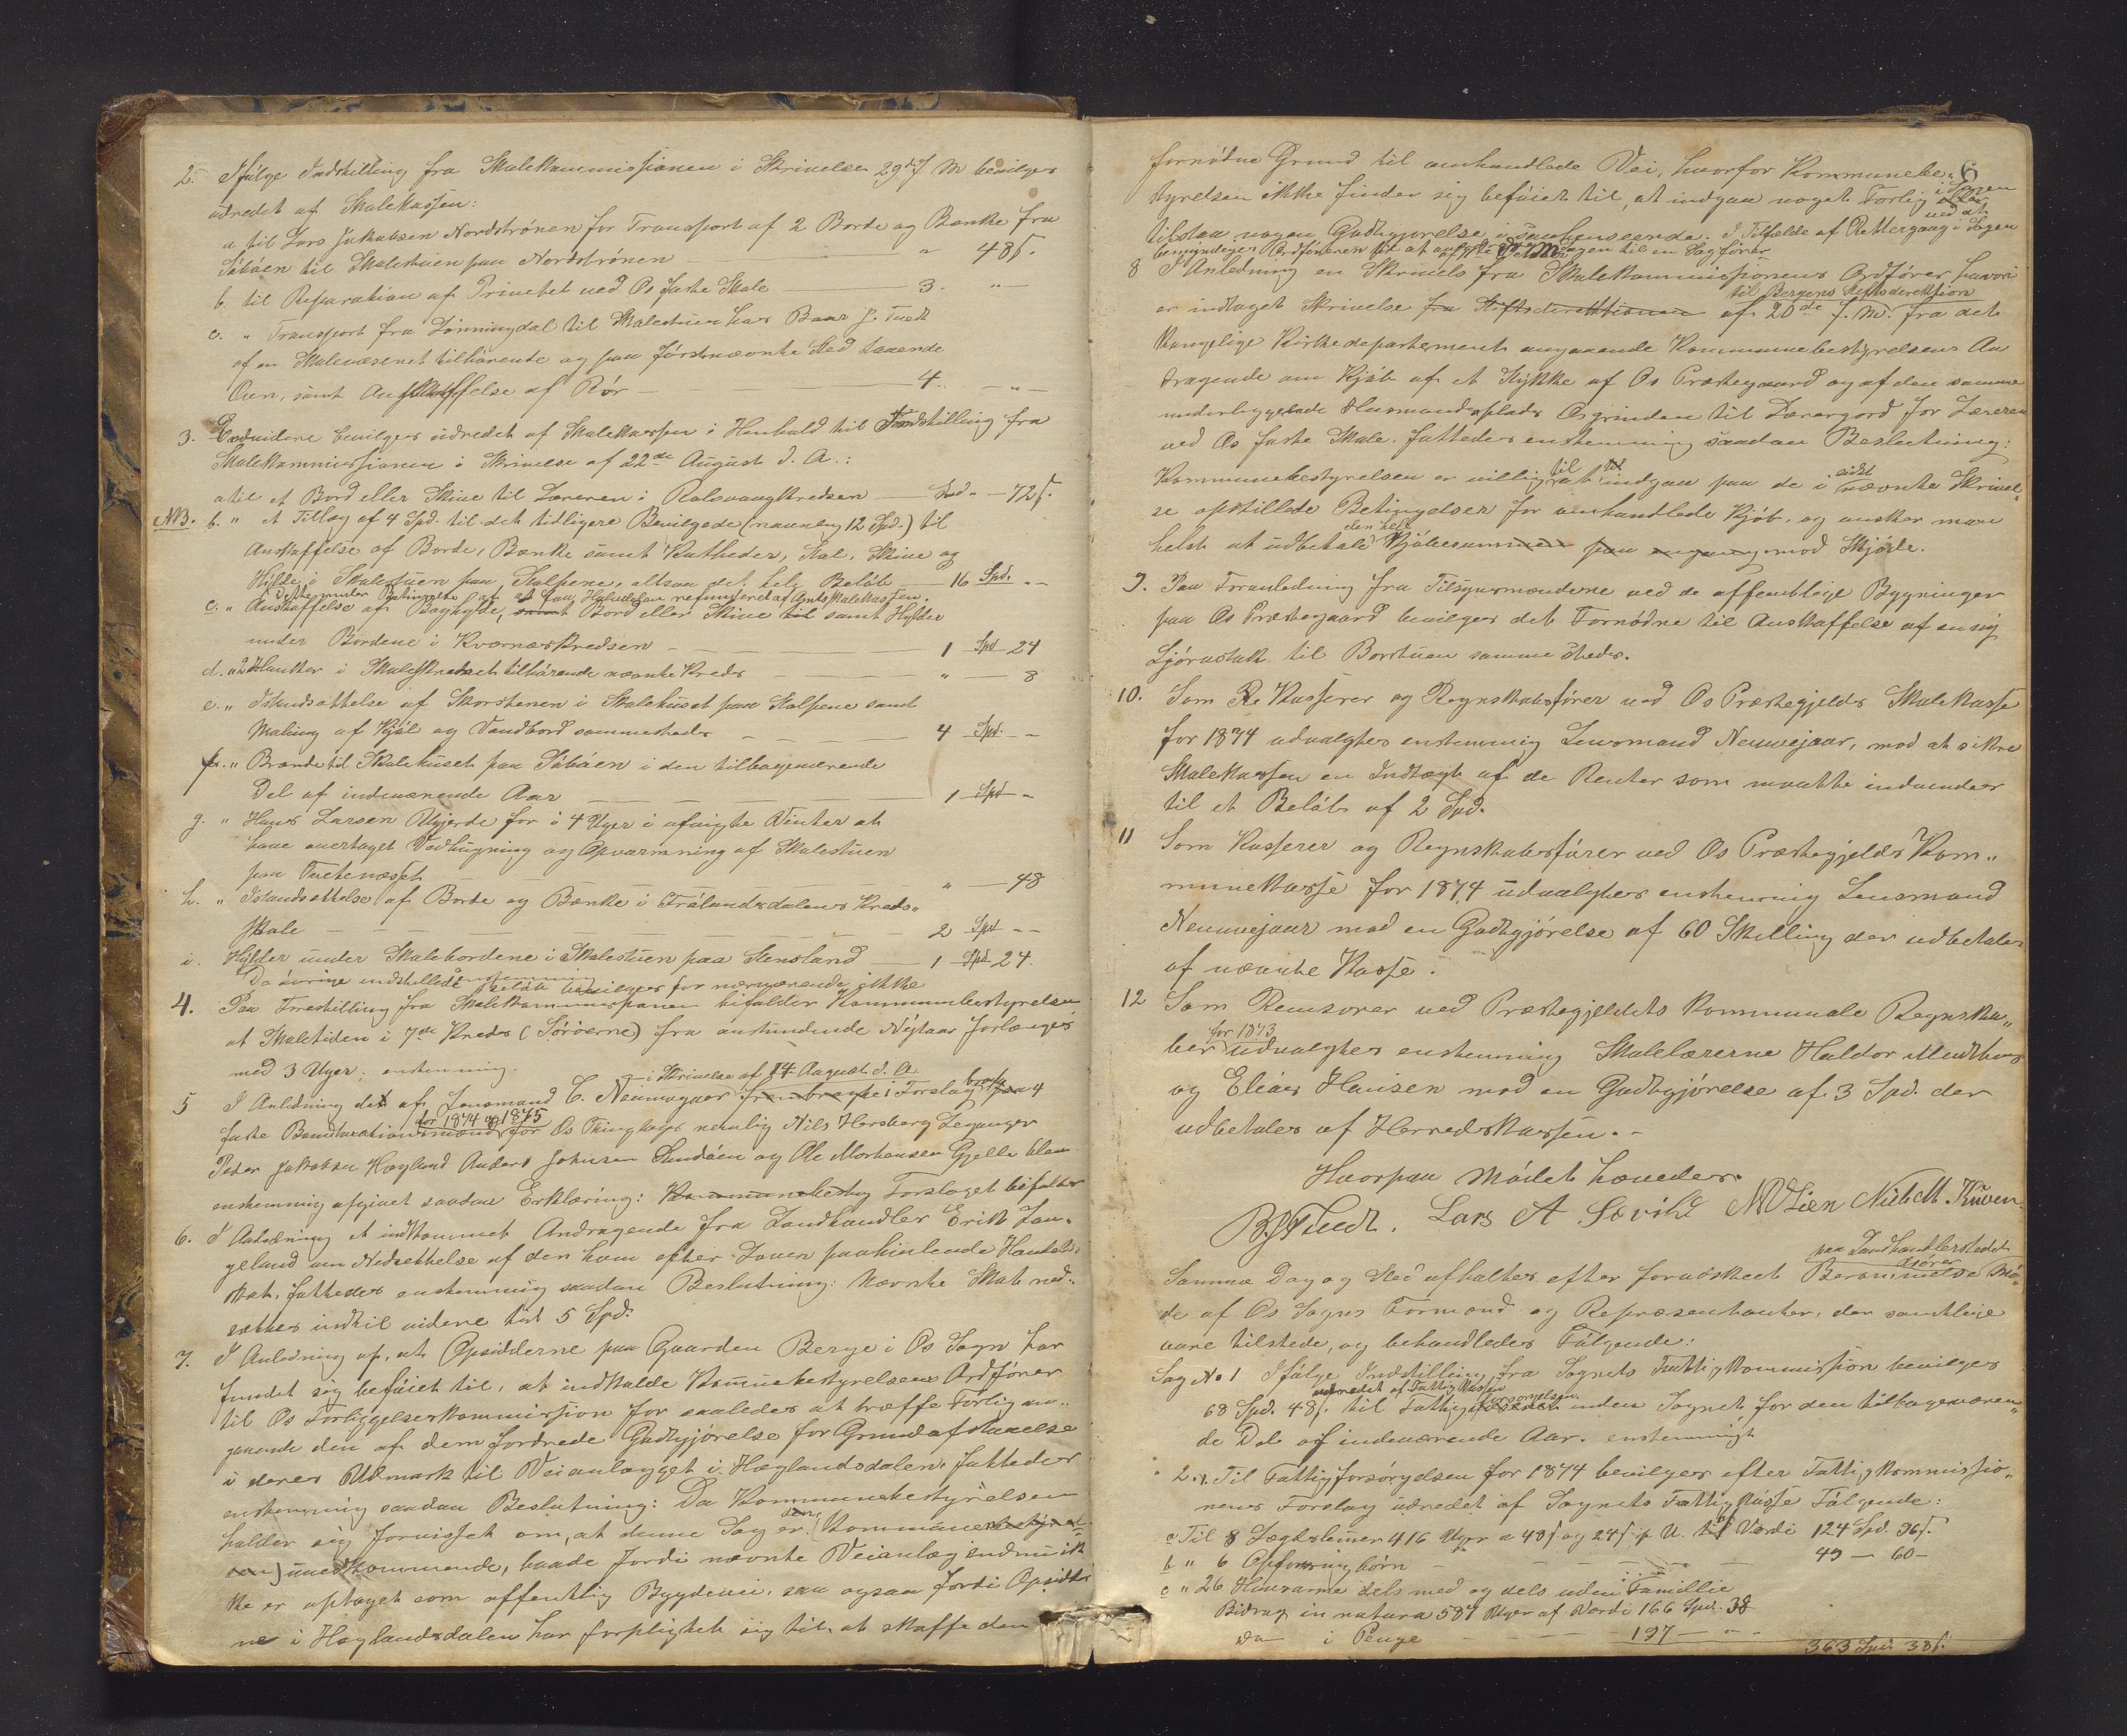 2. Ifølge Indstilling fra Skolekommissionen i Skrivelse 29de f. M. bevilges
udredet af Skolekassen:
a til Lars Jakobsen Nordstrønen for Transport af 2 Borde og Bænke fra
Søbøen til Skolestuen paa Nordstrønen — " 48 s.
b. til Reparation af Privetet ved Os faste Skole — 3. "—
c. " Transport fra Lønningdal til Skolestuen hos Baar J. Tuedt
af en Skolevæsenet tilhørende og paa førstnævnte Sted havende
Ovn, samt Anskaffelse af Rør — 4. — " —
3. Endvidere bevilges udredet af Skolekassen i Henhold til Indstilling fra
Skolekommissionen i Skrivelse af 22de August d. A.:
a til et Bord eller Skive til Læreren i Rolsvaagkredsen — Spd. " — 72 s.
NB. b. " et Tillæg af 4 Spd. til det tidligere Bevilgede (navnlig 12 Spd.) til
Anskaffelse af Borde, Bænke samt Katheder, Stol, Skive og
Hylde i Skolestuen paa Kolpene, altsaa det hele Beløb — 16 Spd. " —
Dette under Betingelse af at faa Halvdelen refunderet af Amtsskolekassen.
c. " Anskaffelse af Boghylde, samt Bord eller Skive til samt Hylder
under Bordene i Kværnæskredsen — 1 Spd 24
d. " 2 Hanker i Skoleskredset tilhørende nævnte Kreds — " — 8
e. " Istandsættelse af Skorstenen i Skolehuset paa Kolpene samt
Maling af Kjøl og Vandbord sammesteds — 4 Spd. —
f. " Brænde til Skolehuset paa Søbøen i den tilbageværende
Del af indeværende Aar — 1 Spd —
g. " Hans Larsen Ugjerde for i 4 Uger i afvigte Vinter at
have overtaget Vedhugning og Opvarmning af Skolestuen
paa Tuetenæsset — " — 48
h. " Istandsættelse af Borde og Bænke i Frølandsdalens Kreds„
skole — 2 Spd — —
i. Hylder under Skolebordene i Skolestuen paa Lensland — 1 Spd 24.
De øvrige indstillede Beløb bevilges for nærværende ikke
enstemmig
4. Paa Forestilling fra Skolekommissionen bifalder Kommunebestyrelsen
at Skoletiden i 7de Kreds (Sørøerne) fra anstundende Nytaar forlænges
med 3 Uger, enstemmig.
5 I Anledning det af Lensmand C. Neumvejaar i Skrivelse af 14 August d. A. frembragte Forslag 4
faste Branntaxationsmænd for 1874 og 1875 for Os Thinglaget nemlig Nils Hersberg Lepsøen
Peder Jakobsen Hegland Anders Johnsen Sundøen og Ole Mortensen Gjelle blev
enstemmig afgivet saadan Erklæring: Kommunebesty Forslaget bifaldes
6. I Anledning et indkommet Andragende fra Landhandler Erik Lan„
geland om Nedsættelse af den ham efter Loven paahvilende Handels„
skat, fattedes enstemmig saadan Beslutning: Nævnte Skat ned„
sættes indtil videre til 5 Spd.
7. I Anledning af, at Opsidderne paa Gaarden Berge i Os Sogn har
fundet sig beføiet til, at indkalde Kommunebestyrelsens Ordfører
til Os Forligelseskommission for saaledes at træffe Forlig an„
gaaende den af dem fordrede Godtgjørelse for Grundafstaaelse
i deres Udmark til Veianlægget i Heglandsdalen, fattedes
enstemmig saadan Beslutning: Da Kommunebestyrelsen
holder sig forvisset om, at denne Sag er den Kommunebestyrel„
sen) uvedkommende, baade fordi nævnte Veianlæg endnu ik
ke er optaget som offentlig Bygdevei, saa ogsaa fordi Opsidder
ne i Heglandsdalen har forpligtet sig til, at skaffe den
6
fornødne Grund til omhandlede Vei, hvorfor Kommunebe„
styrelsen ikke finder sig beføiet til, at indgaa noget Forlig i Sagen
tilstaa nogen Godtgjørelse i Saahenseende. I Tilfælde af Rettergang i Sagen
bemyndiges Ordføreren til at overgive Sagen til en Sagfører
8 I Anledning en Skrivels fra Skolekommissionens Ordfører hvori
til Bergens Stiftsdirektion
er indtaget Skrivelse fra Stiftsdirektionen af 20de f. M. fra det
Kongelige Kirkedepartement angaaende Kommunebestyrelsens An
dragende om Kjøb af et Stykke af Os Præstegaard og af den samme
underliggende Husmandsplads Osgrinden til Lærergord for Læreren
ved Os faste Skole, fattedes enstemmig saadan Beslutning:
Kommunebestyrelsen er villig til at indgaa paa de i sidst nævnte Skrivel„
se opstillede Betingelser for omhandlede Kjøb, og ønsker man
helst at udbetale den hele Kjøbesummen paa engang mod Skjøde.
9. Paa Foranledning fra Tilsynsmændene ved de offentlige Bygninger
paa Os Præstegaard bevilges det Fornødne til Anskaffelse af en ny
Ljørastok til Borstuen samme Steds.
10. Som Re Kasserer og Regnskabsfører ved Os Præstegjelds Skolekasse
for 1874 udvalgtes enstemmig Lensmand Neumvejaar, mod at sikre
Skolekassen en Indtægt af de Renter som maatte indvindes
til et Beløb af 2 Spd.
11 Som Kasserer og Regnskabsfører ved Os Præstegjelds Kom„
munekasse for 1874 udvalgtes enstemmig Lensmand
Neumvejaar mod en Godtgjørelse af 60 Skilling der udbetales
af nævnte Kasse.
12 Som Revisorer ved Præstegjeldets kommunale Regnska„
ber for 1873 udvalgtes enstemmig Skolelærerne Haldor Midthus
og Elias Hansen mod en Godtgjørelse af 3 Spd. der
udbetales af Herredskassen. —
Hvorpaa Mødet hævedes.
B. J. Tuedt. Lars A. Søvik N N Lien Niels M. Kuven.
Samme Dag og Sted afholtes efter forudskeet Berammelse Mø„
paa Landhandlerstedet
de af Os Sogns Formænd og Repræsentanter, der samtlige
vare tilstede, og behandledes Følgende:
Sag No 1 Ifølge Indstilling fra Sognets Fattigkommission bevilges
udredet af Fattigkassen
68 Spd. 48 s. til Fattigforsørgelsen inden Sognet for den tilbageværen„
de Del af indeværende Aar. enstemmigt
" 2. Til Fattigforsørgelsen for 1874 bevilges efter Fattigkommissio„
nens Forslag udredet af Sognets Fattigkasse Følgende:
a Til 8 Lægdslemer 416 Uger a 48 s og 24 s p U. til Værdi 124 Spd. 96 s.
b " 6 Opfostringsbørn — 49 — 60 —
c " 26 Huusarme dels med og dels uden Familie
Bidrag in natura 587 Uger af Værdi 166 Spd. 38
Do i Penge — 197 — " — 363 Spd. 38 s.